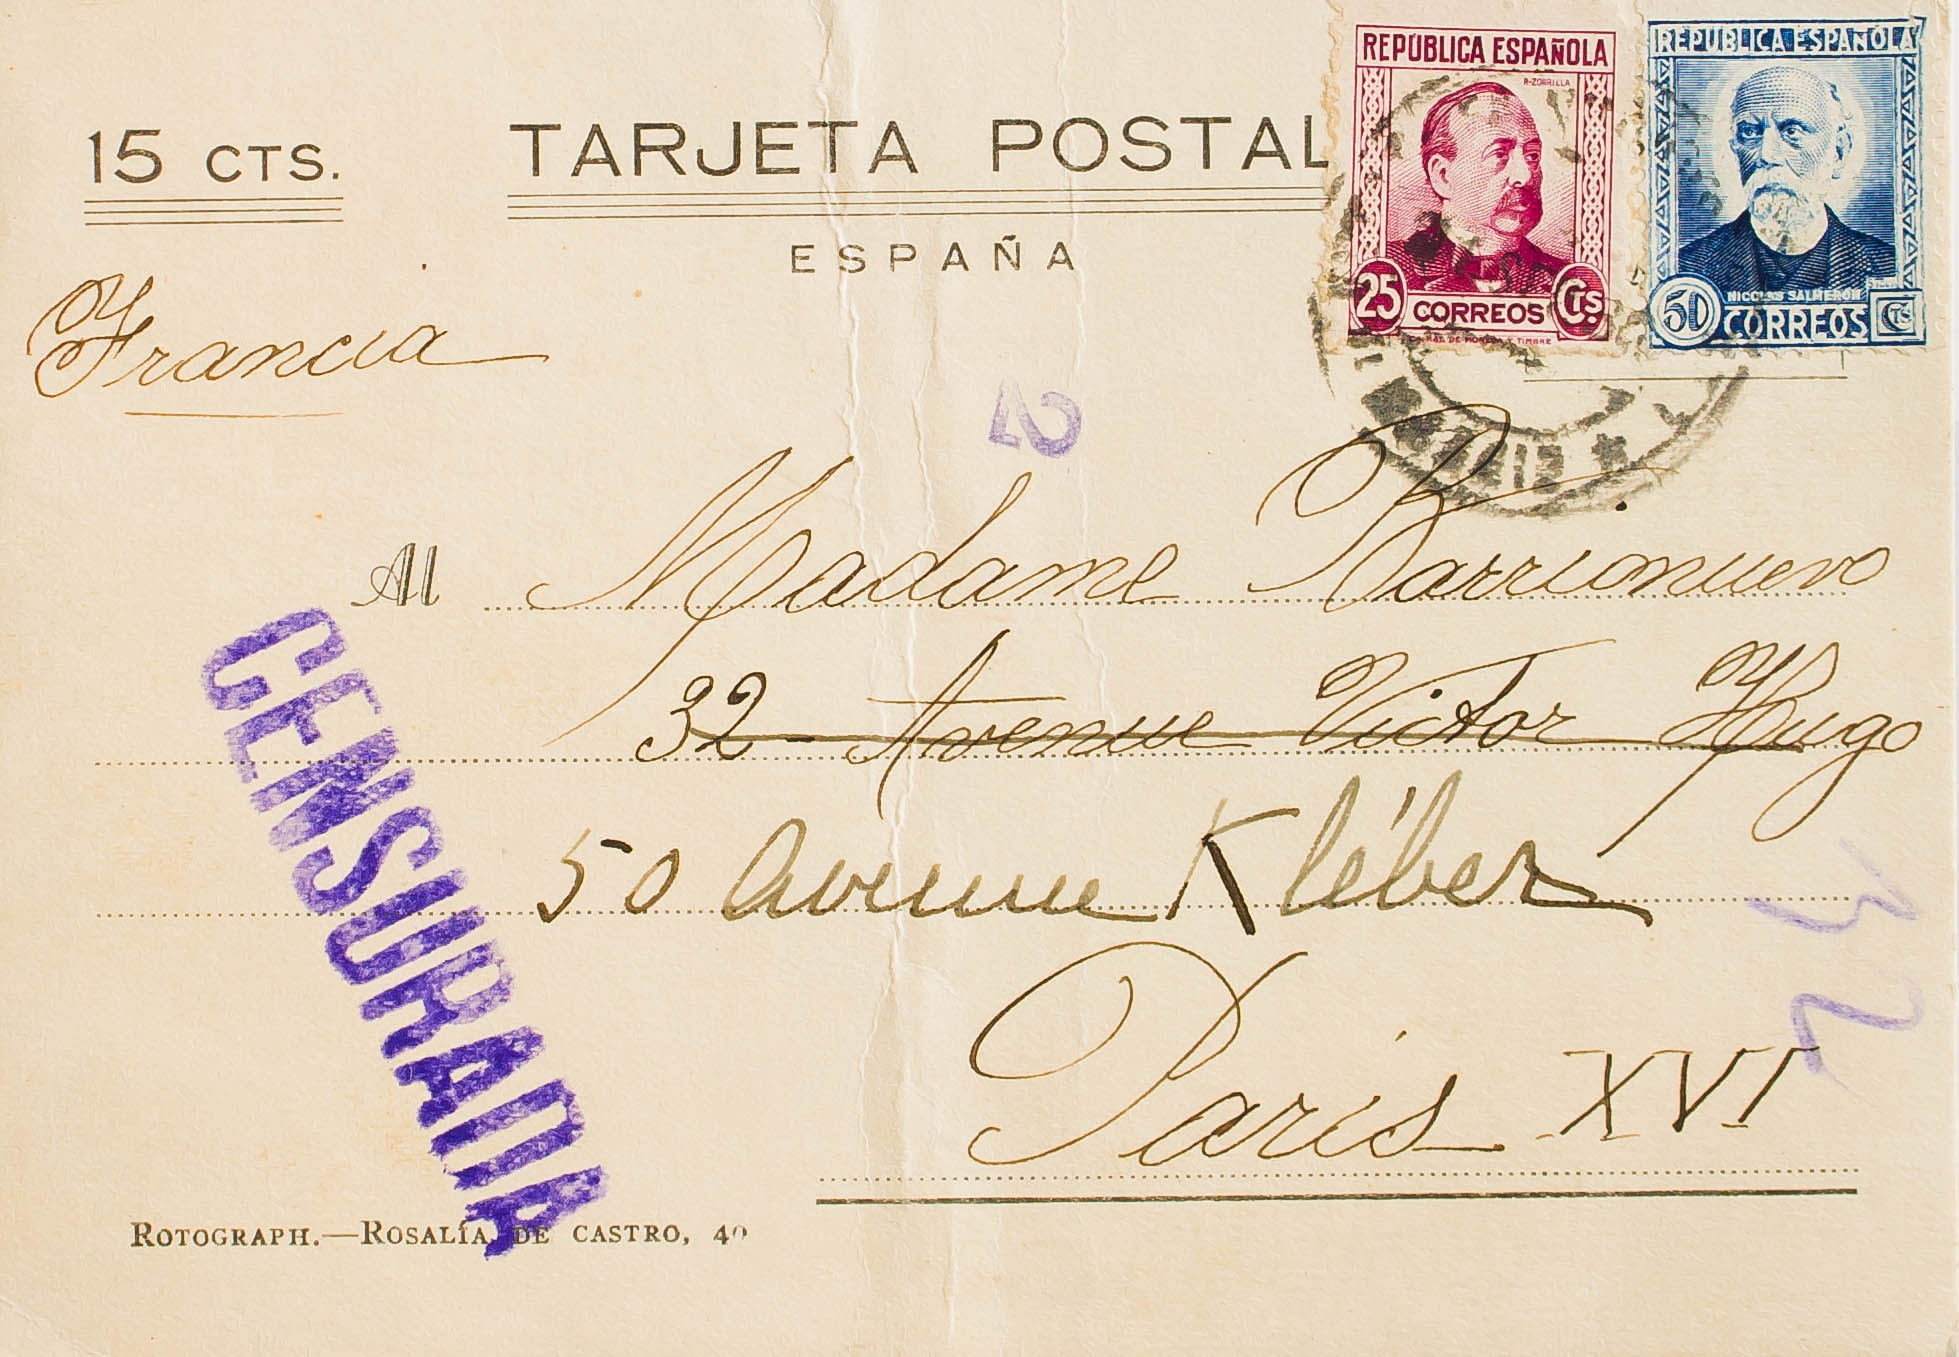 REPÚBLICA ESPAÑOLA
R-ZORRILLA
25 CORREOS Cts.
REPUBLICA ESPAÑOLA
NICOLAS SALMERON
50 CORREOS CTS
15 CTS.
TARJETA POSTAL
ESPAÑA
Francia
2
Al Madame Barrionuevo
32 - Avenue Victor Hugo
50 avenue Kléber
Paris XVI
32
CENSURADA
ROTOGRAPH.—ROSALÍA DE CASTRO, 40